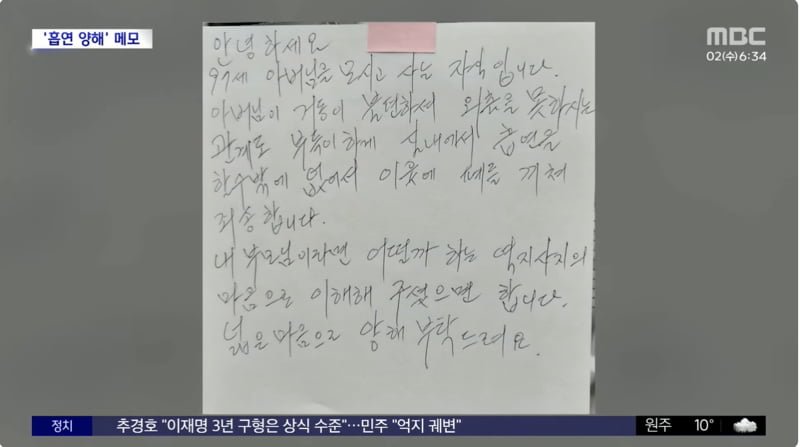 '흡연 양해' 메모
MBC
02(수) 6:34
안녕하세요
97세 아버님을 모시고 사는 자식입니다.
아버님이 거동이 불편하셔 외출을 못하시는
관계로 부득이하게 실내에서 흡연을
할수밖에 없어서 이웃에 폐를 끼쳐
죄송합니다.
내 부모님이라면 어떨까 하는 역지사지의
마음으로 이해해 주셨으면 합니다.
넓은 마음으로 양해 부탁드려요.
정치 추경호 "이재명 3년 구형은 상식 수준"…민주 "억지 궤변" 원주 10°